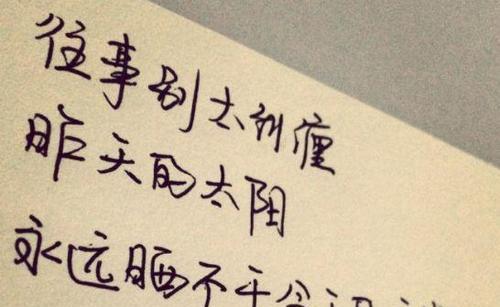 往事别太纠缠
昨天的太阳
永远晒不干今